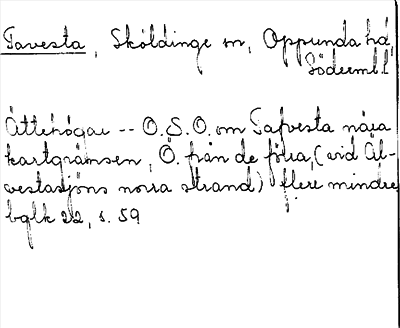 Tavesta, Sköldinge sn, Oppunda hd,
Söderml
Ättehögar -- O.S.O. om Tafvesta nära
kartgränsen, Ö. från de förra, (vid Äl-
vestasjöns norra strand) flere mindre
bglk 22, s. 59